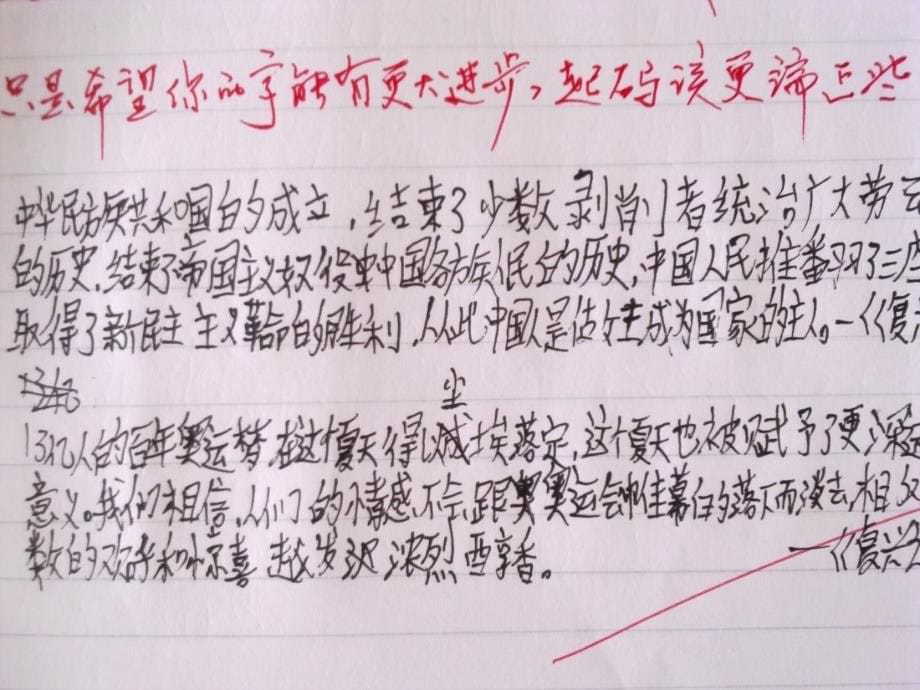 只是希望你的字能有更大进步，起码该更端正些
中华民族共和国的成立，结束了少数剥削者统治广大劳
的历史，结束了帝国主义奴役中国各族人民的历史，中国人民推翻了三座
取得了新民主主义革命的胜利，从此中国人民成为国家的主人。—《复
尘
13亿人的百年奥运梦，在这个夏天得以埃落定，这个夏天也被赋予了更深远
意义。我们相信，人们的情感不会跟奥运会帷幕的落下而淡去，相
数的欢呼和惊喜 越发浓烈 醇香。
—《复兴之